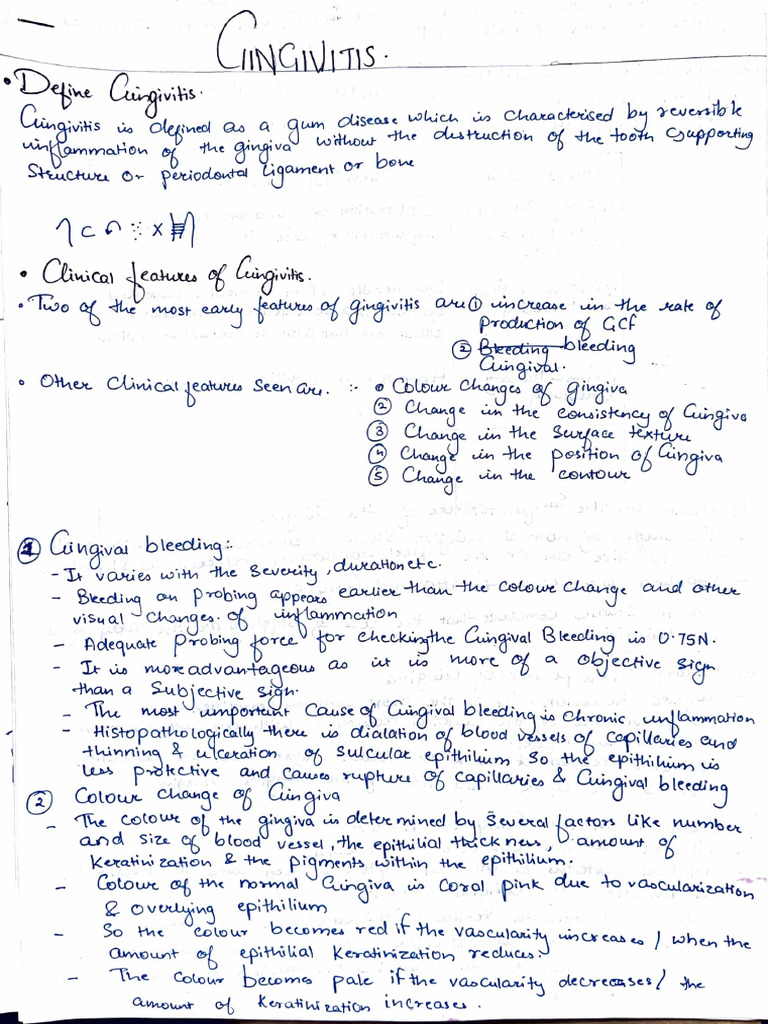 GINGIVITIS.
• Define Gingivitis.
Gingivitis is defined as a gum disease which is characterised by reversible
inflammation of the gingiva without the destruction of the tooth supporting
Structure or periodontal ligament or bone
• Clinical features of Gingivitis.
• Two of the most early features of gingivitis are ① increase in the rate of
production of GCF
② Bleeding bleeding
Gingival.
• Other Clinical features Seen are. :- • Colour changes of gingiva
② Change in the consistency of Gingiva
③ Change in the Surface texture
④ Change in the position of Gingiva
⑤ Change in the contour
① Gingival bleeding:-
- It varies with the severity, duration etc.
- Bleeding on probing appears earlier than the colour change and other
visual changes of inflammation
- Adequate probing force for checking the Gingival Bleeding is 0.75N.
- It is more advantageous as it is more of a objective sign
than a Subjective sign.
- The most important cause of Gingival bleeding is chronic inflammation
- Histopathologically there is dialation of blood vessels of capillaries and
thinning & ulceration of sulcular epithilium So the epithilium is
less protective and causes rupture of capillaries & Gingival bleeding
② Colour change of Gingiva
- The colour of the gingiva is determined by several factors like number
and size of blood vessel, the epithilial thickness, amount of
Keratinization & the pigments within the epithilium.
- Colour of the normal Gingiva is coral pink due to vascularization
& overlying epithilium
- So the colour becomes red if the vascularity increases / when the
amount of epithilial Keratinization reduces.
- The colour becomes pale if the vascularity decreases / the
amount of Keratinization increases.